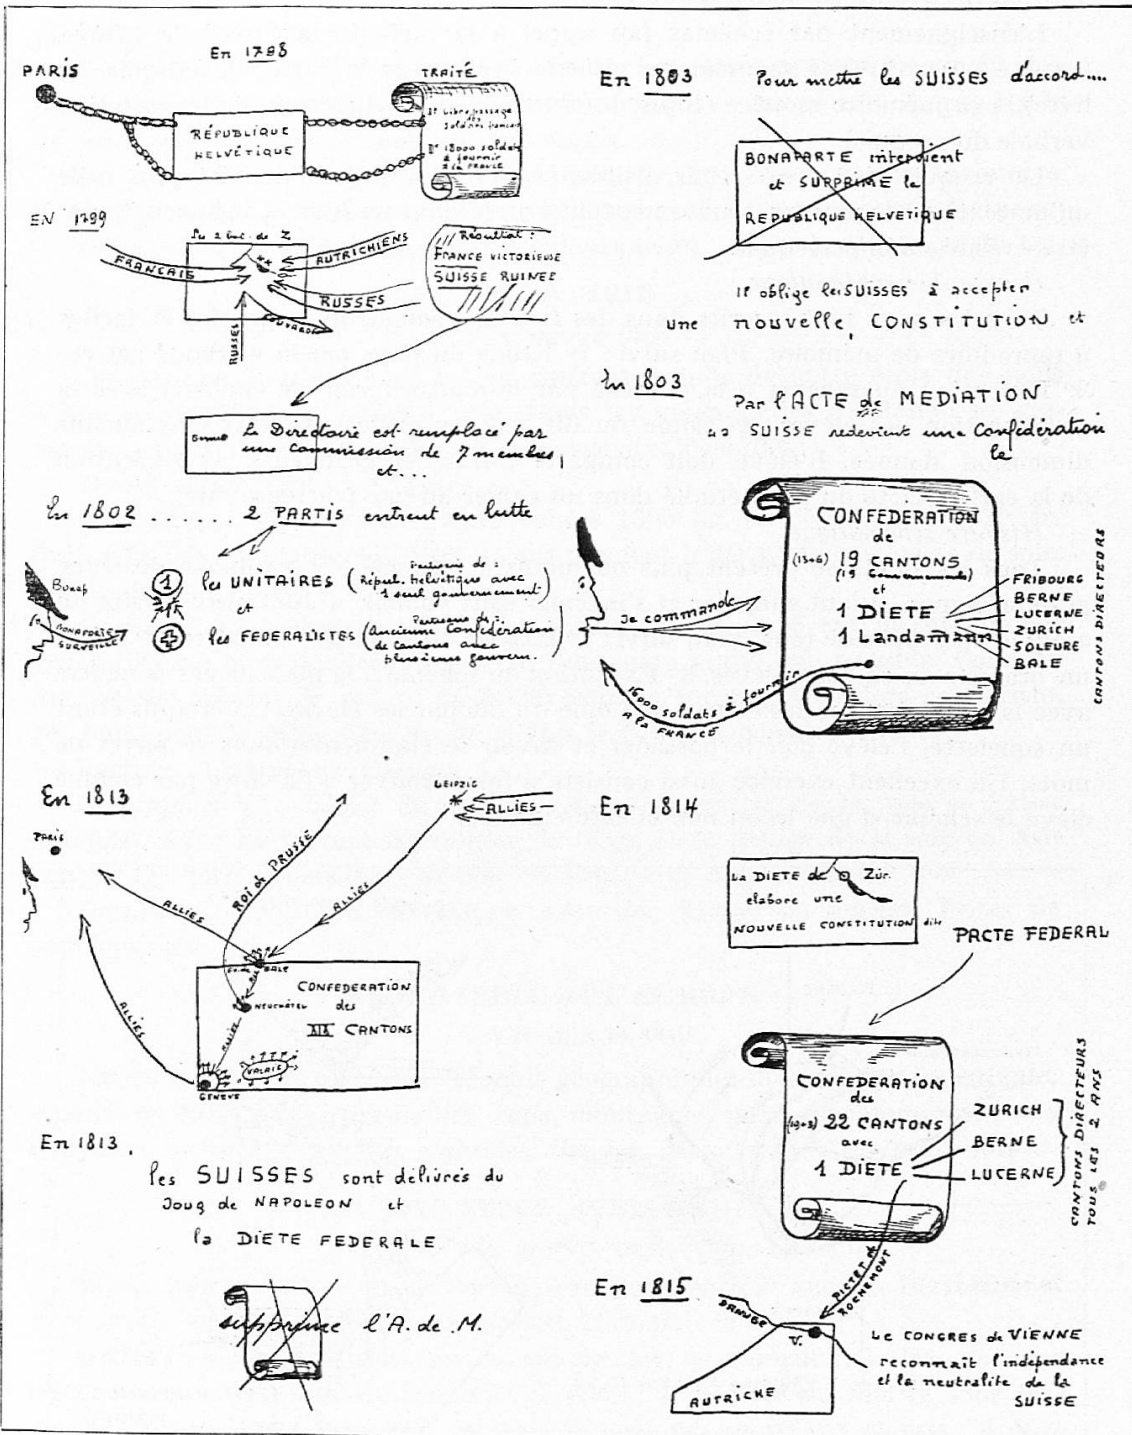 En 1798
PARIS
RÉPUBLIQUE
HELVÉTIQUE
TRAITÉ
1° Libre passage
des
soldats français
2° 18000 soldats
à fournir
à la FRANCE
EN 1799
Les 2 bat. de Z
FRANCAIS
AUTRICHIENS
RUSSES
RUSSES
SOUVAROFF
Résultat :
FRANCE VICTORIEUSE
SUISSE RUINEE
Le Directoire est remplacé par
une commission de 7 membres
et...
En 1802 ....... 2 PARTIS entrent en lutte
Bonap
BONAPARTE
SURVEILLE
1 les UNITAIRES (Partisans de :
Répub. Helvétique avec
1 seul gouvernement)
et
les FEDERALISTES (Partisans de :
Ancienne Confédération
de cantons avec
plusieurs gouvern.)
En 1803 Pour mettre les SUISSES d'accord....
BONAPARTE intervient
et SUPPRIME la
REPUBLIQUE HELVETIQUE
Il oblige les SUISSES à accepter
une nouvelle CONSTITUTION et
En 1803
Par l'ACTE de MEDIATION
la SUISSE redevient une Confédération
la
CONFEDERATION
de
(13+6) 19 CANTONS
(19 Gouvernements)
et
1 DIETE
1 Landamann
FRIBOURG
BERNE
LUCERNE
ZURICH
SOLEURE
BALE
CANTONS DIRECTEURS
Je commande
16000 soldats à fournir
A la FRANCE
En 1813
PARIS
LEIPZIG
ALLIES
ROI de PRUSSE
ALLIES
ALLIES
ALLIES
BALE
NEUCHÂTEL
VALAIS
GENEVE
CONFEDERATION
des
XIX CANTONS
En 1813.
les SUISSES sont délivrés du
Joug de NAPOLEON et
la DIETE FEDERALE
supprime l'A. de M.
En 1814
La DIETE de Zür.
elabore une
NOUVELLE CONSTITUTION dite
PACTE FEDERAL
CONFEDERATION
des
(19+3) 22 CANTONS
avec
1 DIETE
ZURICH
BERNE
LUCERNE
CANTONS DIRECTEURS
TOUS LES 2 ANS
PICTET de
ROCHEMONT
En 1815
DANUBE
V.
AUTRICHE
Le CONGRES de VIENNE
reconnaît l'indépendance
et la neutralité de la
SUISSE